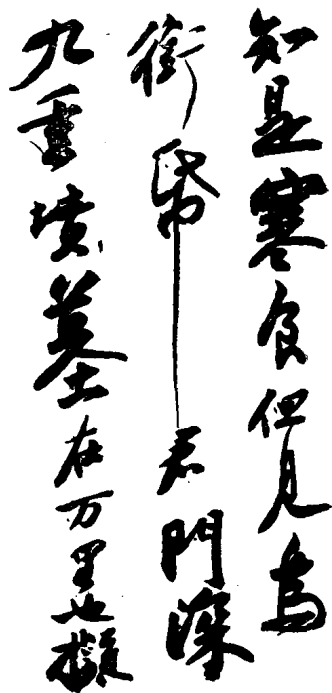 知是寒食但見烏
銜帋君門深
九重墳墓在万里也擬